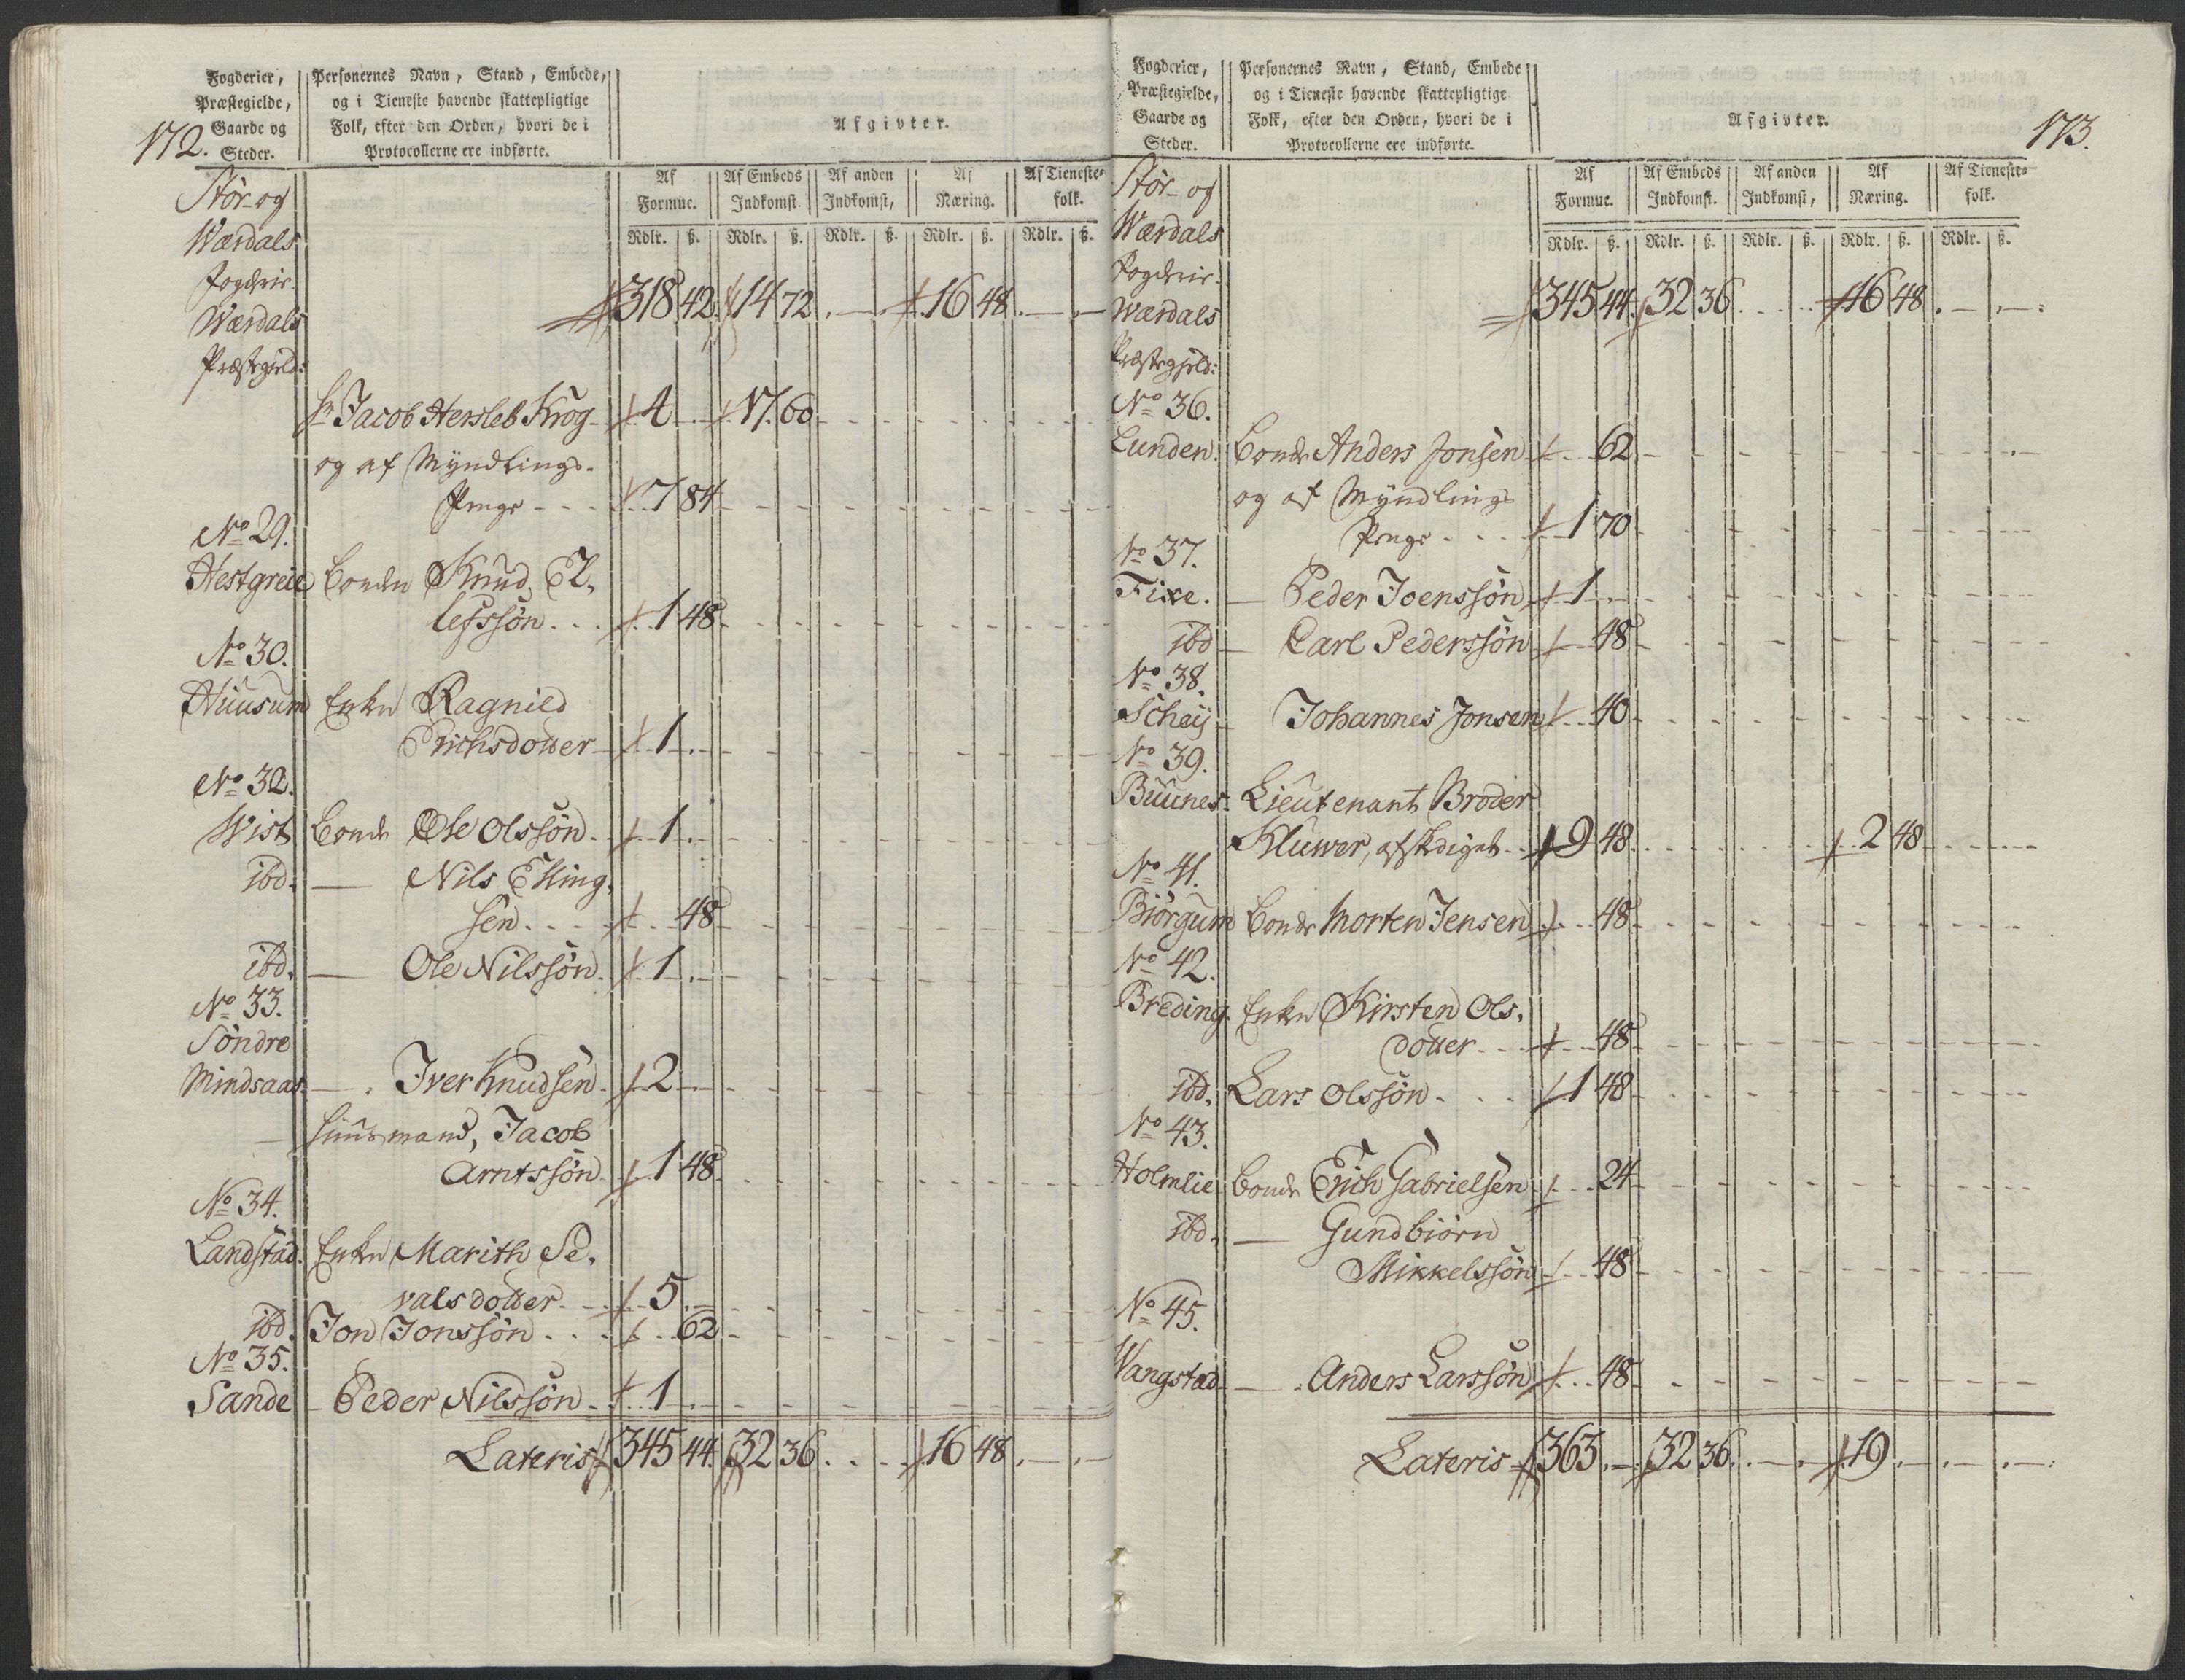 172.
Fogderier, Præstegielde, Gaarde og Steder.
Personernes Navn, Stand, Embede, og i Tieneste havende skattepligtige Folk, efter den Orden, hvori de i Protocollerne ere indførte.
Afgivter.
Af Formue. | Af Embeds Indkomst. | Af anden Indkomst, | Af Næring. | Af Tieneste-folk.
Rdlr. ß. Rdlr. ß. Rdlr. ß. Rdlr. ß. Rdlr. ß.
Stør- og
Wærdals
Fogderie.
318 42. 14 72. - . 16 48. - . -
Wærdals
Præstegield:
Hr Jacob Hersleb Krog - 4 - . 17. 60
og af Myndlings-
Penge - - - 7 84
No 29.
Hestgreie Bonden Knud El-
lefssøn . . . 1 48
No 30.
Huusum Enken Ragnild
Erichsdotter - 1 . -
No 32.
Wist Bonde Ole Olssøn - 1 . -
ibd. — Nils Elling-
sen . . . 48
ibd. — Ole Nilssøn. 1 . -
No 33.
Søndre
Mindsaas — . Iver Knudsen - 2 - . -
— Huusmand, Jacob
Arntssøn 1 48
No 34.
Landstad. Enken Marith Si-
valsdotter - 5 . -
ibd. Jon Jonssøn . . . 62
No 35.
Sande - Peder Nilssøn - 1 . -
Lateris 345 44. 32 36. . . . 16 48. - . -
173.
Fogderier, Præstegielde, Gaarde og Steder.
Personernes Navn, Stand, Embede og i Tieneste havende skattepligtige Folk, efter den Orden, hvori de i Protocollerne ere indførte.
Afgivter.
Af Formue. | Af Embeds Indkomst. | Af anden Indkomst, | Af Næring. | Af Tieneste-folk.
Rdlr. ß. Rdlr. ß. Rdlr. ß. Rdlr. ß. Rdlr. ß.
Stør- og
Wærdals
Fogderie.
Wærdals
345 44. 32 36. . . . 16 48. - . - :
Præstegield:
No 36.
Lunden. Bonde Anders Jonsen - 62
og af Myndlings
Penge . . . 1 70
No 37.
Fixe. — Peder Joenssøn 1 . -
ibd — Carl Pederssøn 48
No 38.
Scheij — Johannes Jonsen 40
No 39.
Buunes. Lieutenant Broder
Kluwer, afskediget . . 9 48 2 48
No 41.
Biørgum Bonde Morten Jensen 48
No 42.
Breding. Enken Kirsten Ols-
dotter - - 48
ibd. Lars Olssøn . . . 1 48
No 43.
Holmlie Bonde Erich Gabrielsen 24
ibd. — Gundbiørn
Mikkelssøn 48
No 45.
Wangstad — . Anders Larssøn 48
Lateris 363. - . 32 36. . - . 19. - . - . - :